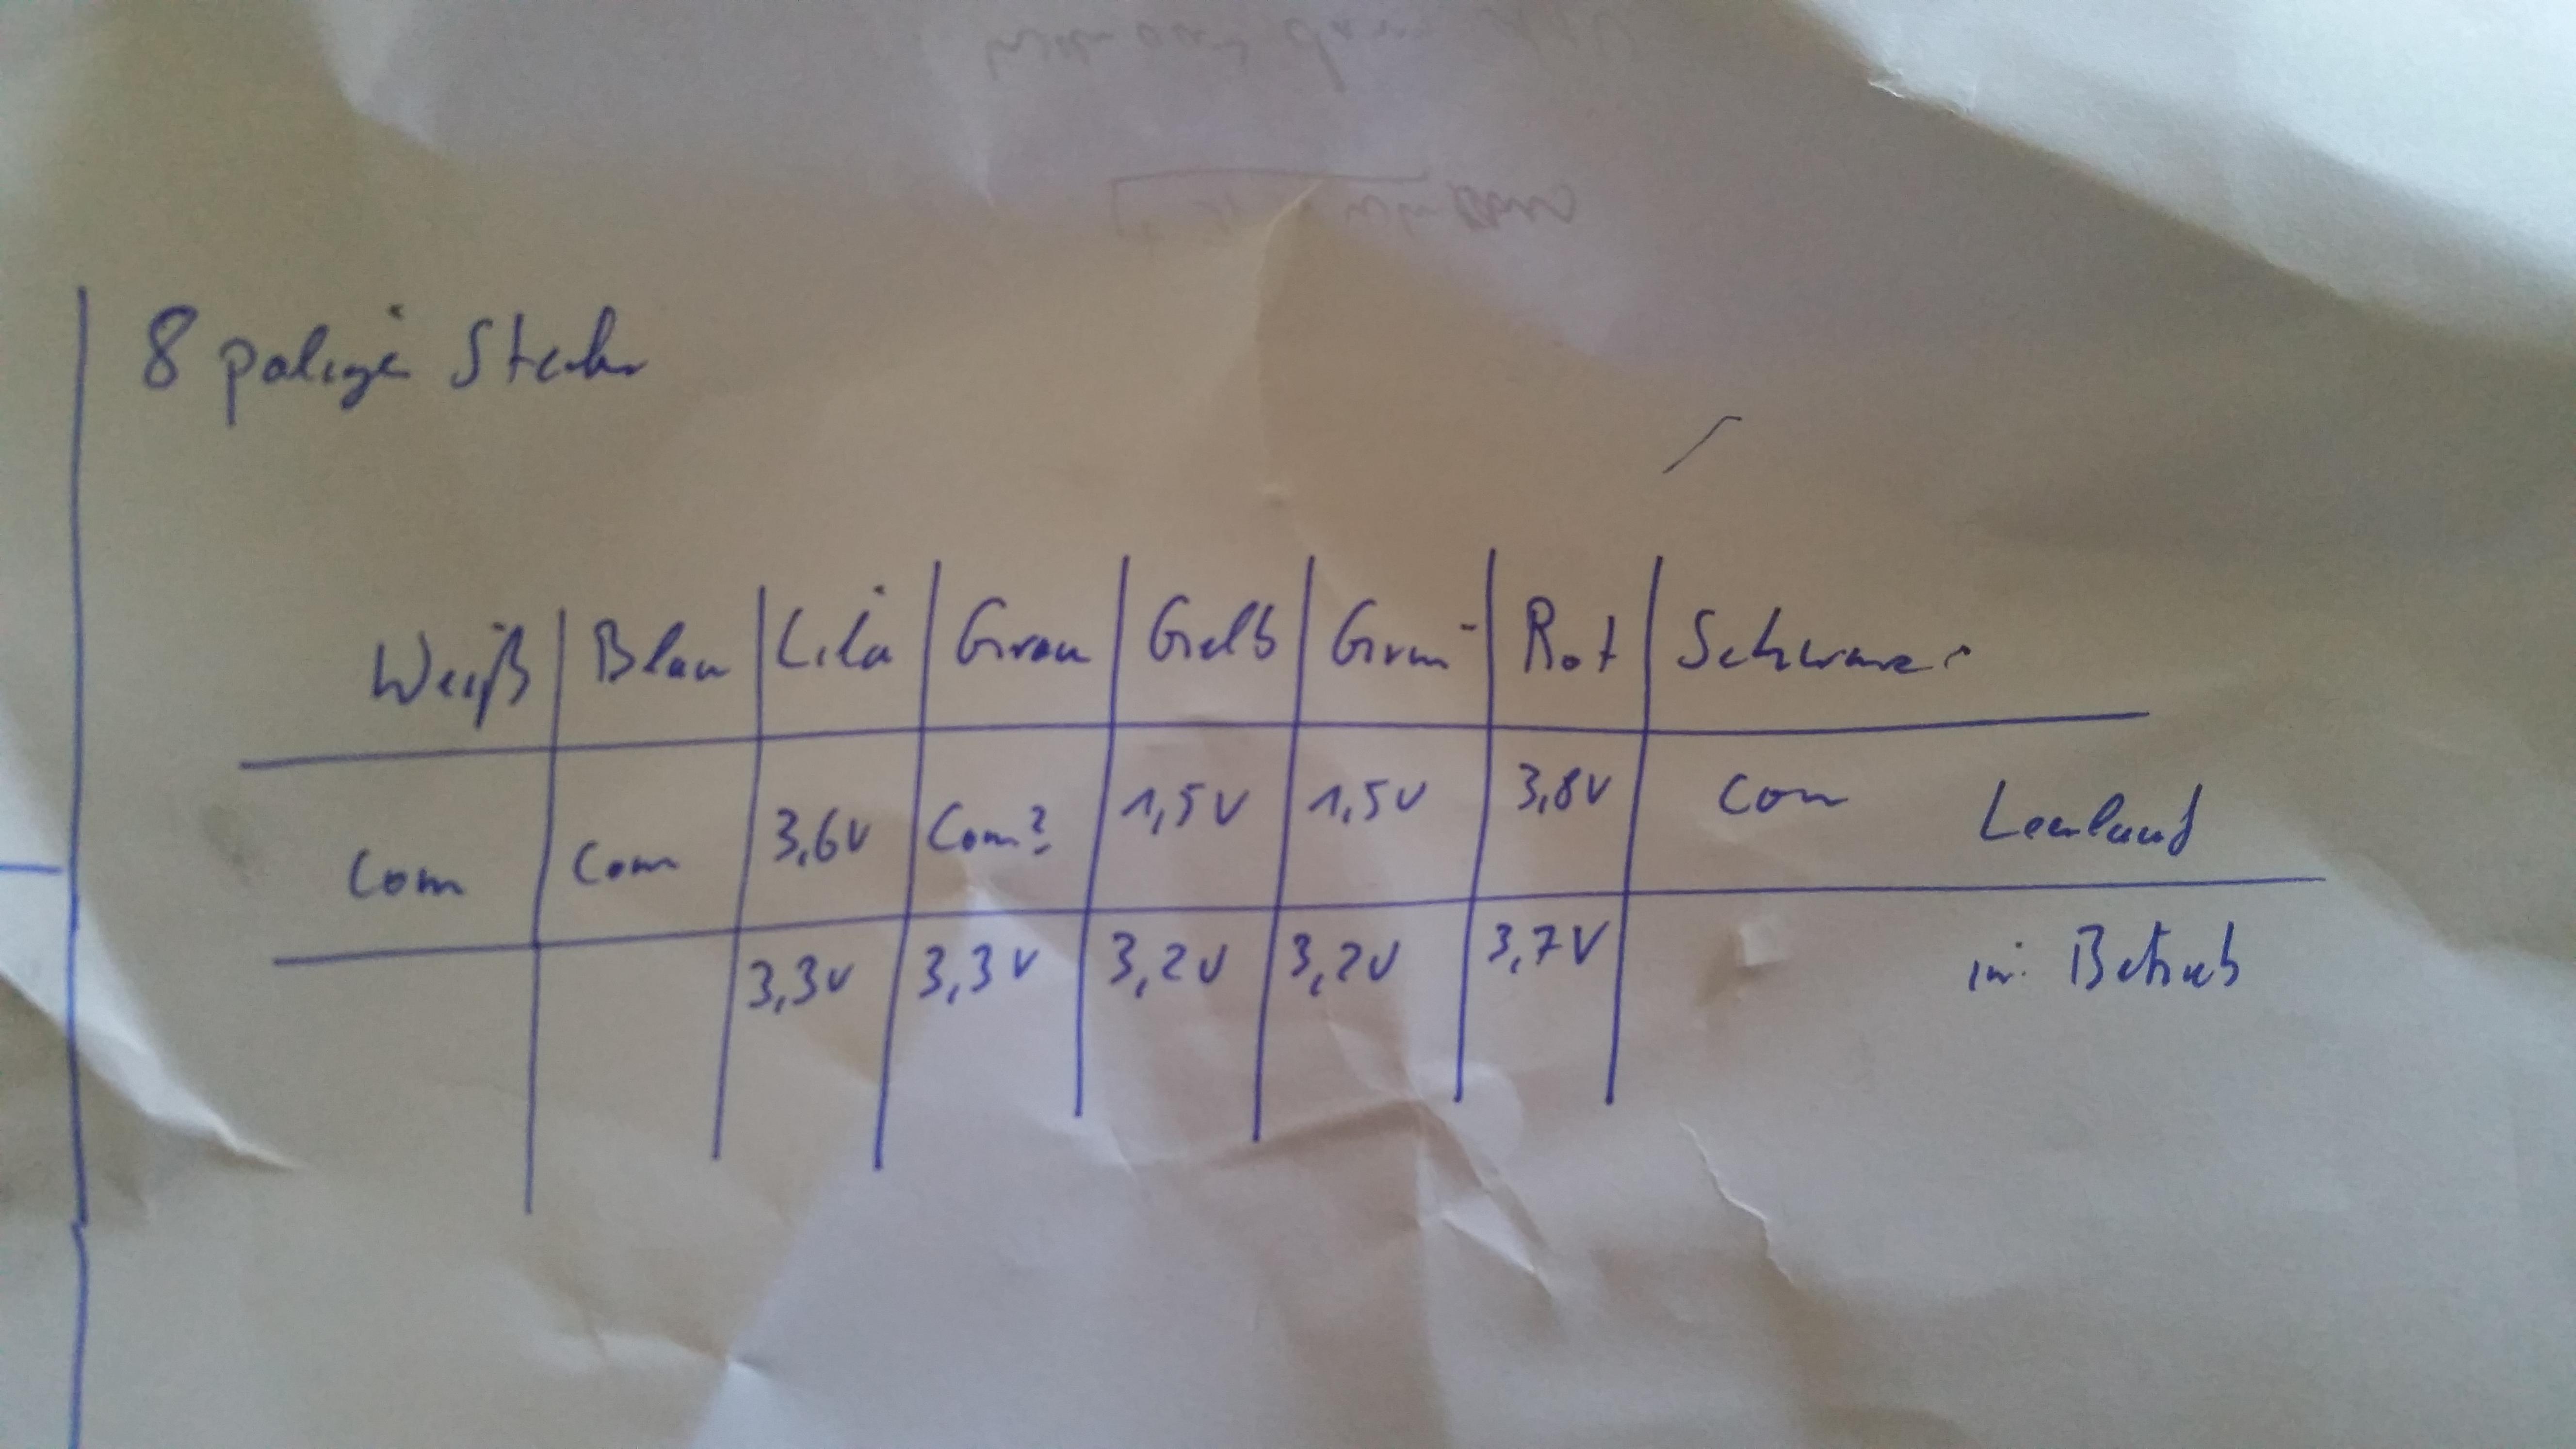 8 polige Stecker
Weiß Blau Lila Grau Gelb Grün Rot Schwarz
Com Com 3,6V Com? 1,5V 1,5V 3,8V Com Leerlauf
3,3V 3,3V 3,2V 3,2V 3,7V in Betrieb